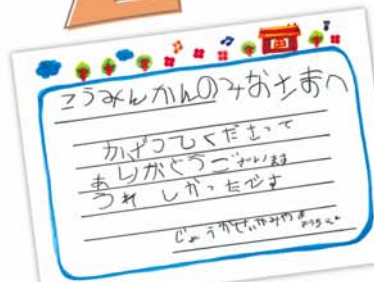 こうみんかんのみなさまへ
かざってくださって
ありがとうございます
うれしかったです
ようちえん